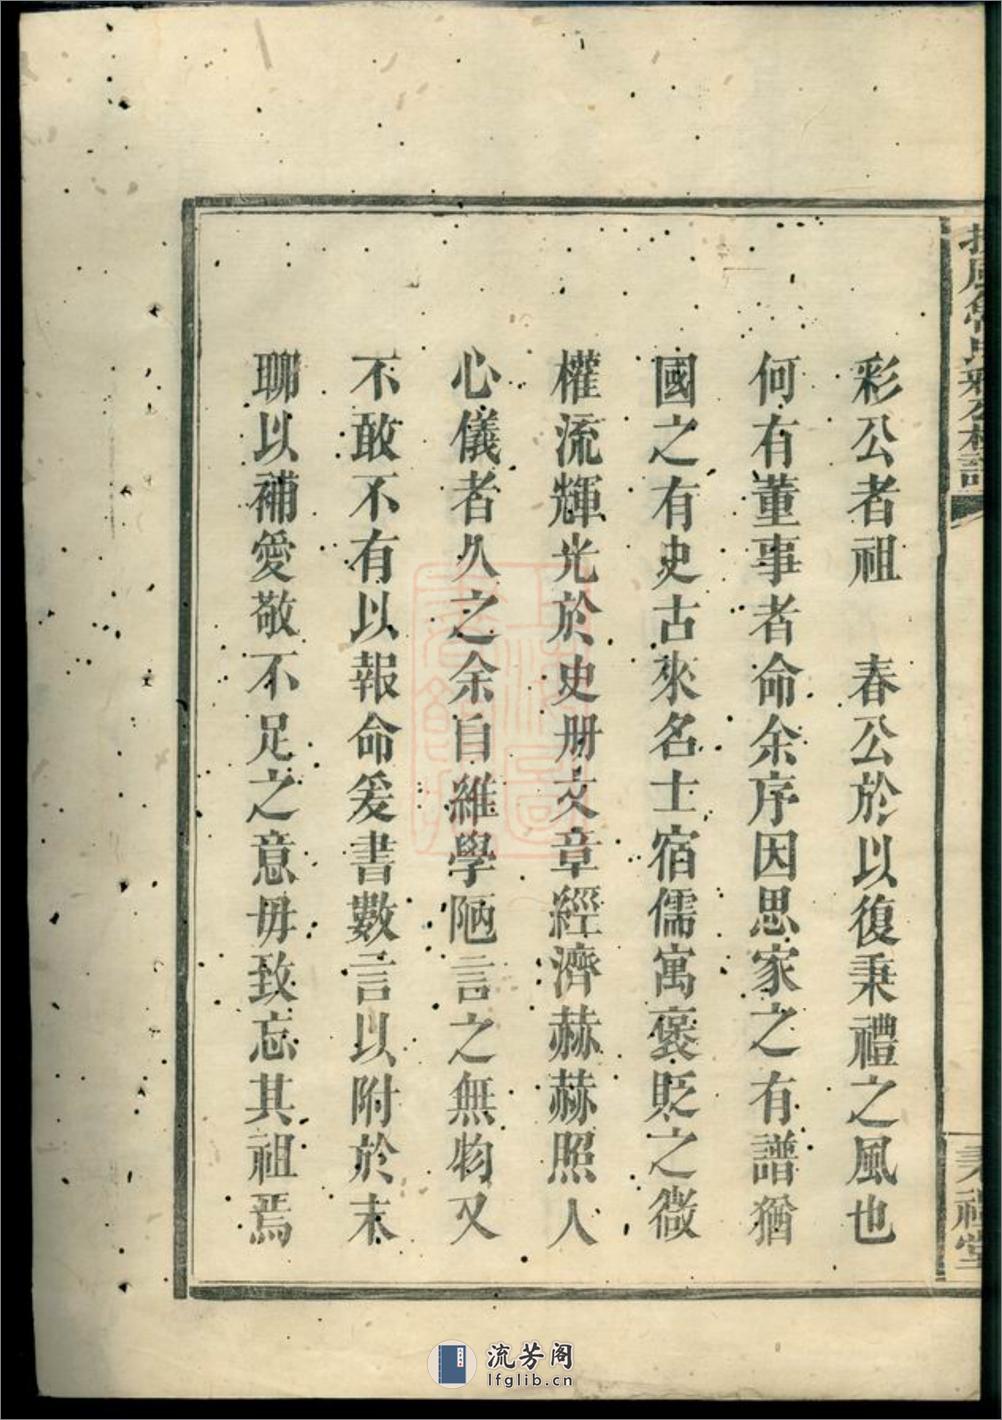 彩公者祖　春公於以復秉禮之風也
何有董事者命余序因思家之有譜猶
國之有史古來名士宿儒寓褒貶之微
權流輝光於史册文章經濟赫赫照人
心儀者久之余自維學陋言之無物又
不敢不有以報命爰書數言以附於末
聊以補愛敬不足之意毋致忘其祖焉
流芳阁
lfglib.cn